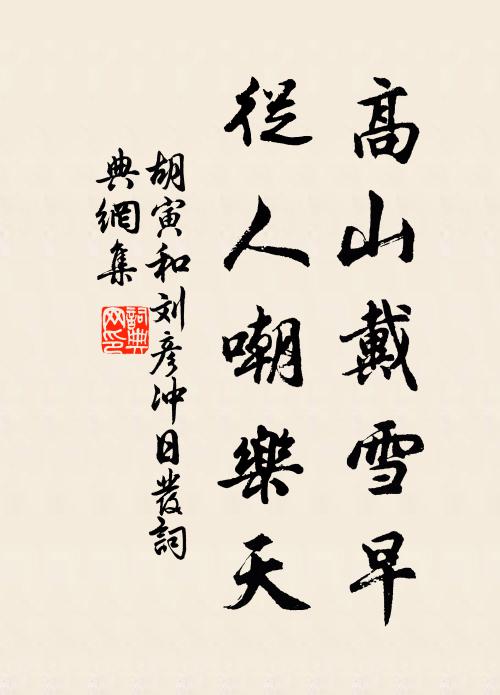 高山戴雪早
從人嘲樂天
胡寅和刘彥冲日發詞
典網集
詞典
网印